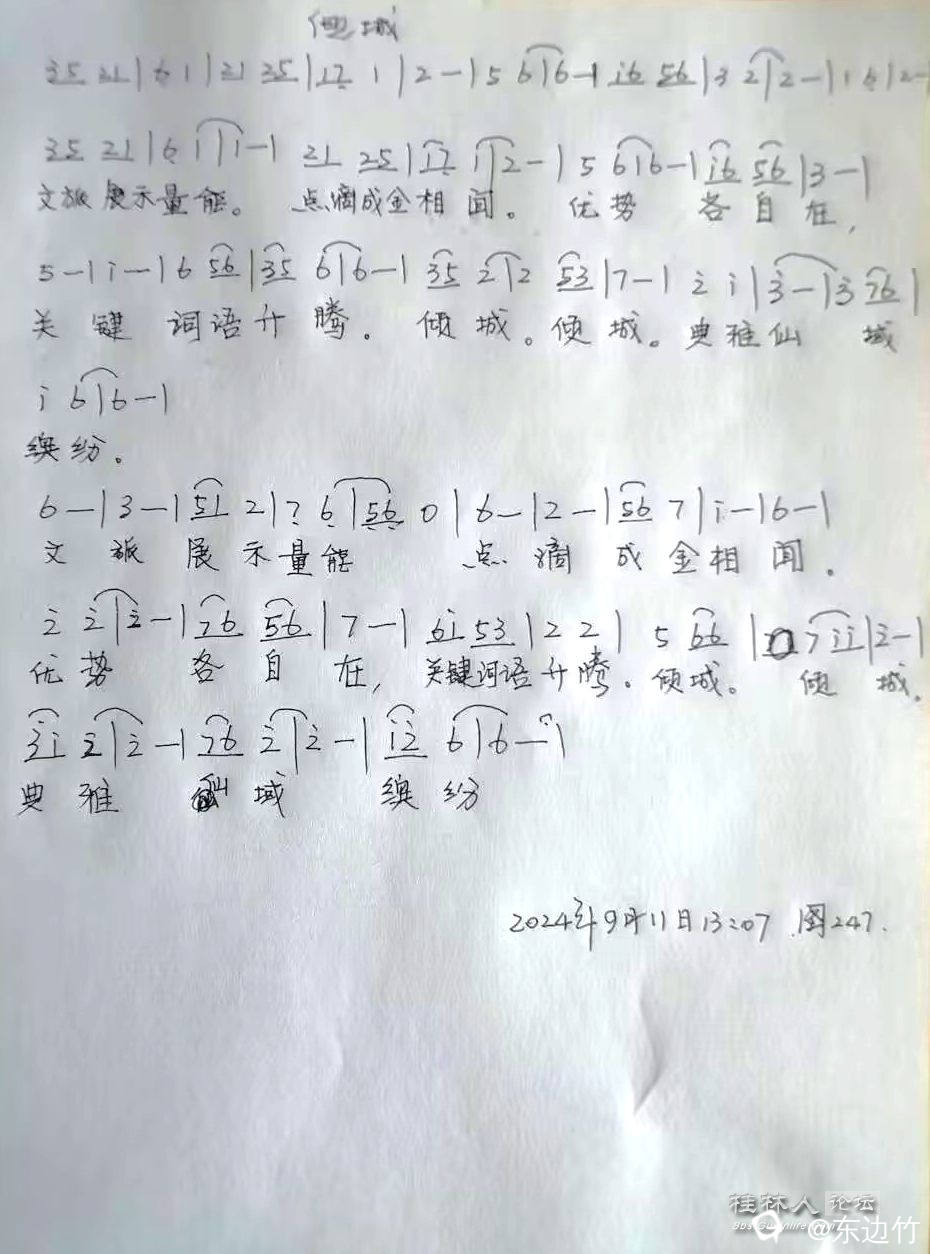 倾城
35 21 | 6 1 | 21 35 | 17 1 | 2 - | 5 6 | 6 - | i6 56 | 3 2 | 2 - | 1 6 | 2 -
35 21 | 6 1 | 1 - | 21 25 | 17 1 | 2 - | 5 6 | 6 - | i6 56 | 3 - |
文旅展示量能。 点滴成金相闻。 优势 各自在,
5 - | i - | 6 56 | 35 6 | 6 - | 35 2 | 2 53 | 7 - | 2̇ i | 3̇ - | 3̇ 76 |
关键词语升腾。 倾城。倾城。典雅仙 域
i 6 | 6 - |
缤纷。
6 - | 3 - | 51 2 | 7 6 | 56 0 | 6 - | 2 - | 56 7 | i - | 6 - |
文旅展示量能 点滴成金相闻.
2̇ 2̇ | 2̇ - | 76 56 | 7 - | 6i 53 | 2 2 | 5 66 | 0 7 ii | 2̇ - |
优势 各自在, 关键词语升腾. 倾城。 倾城.
3̇i 2̇ | 2̇ - | 76 2̇ | 2̇ - | i2̇ 6 | 6 - |
典雅 仙域 缤纷
2024年9月11日13:07 .图247.
桂林人 论坛
@东边竹